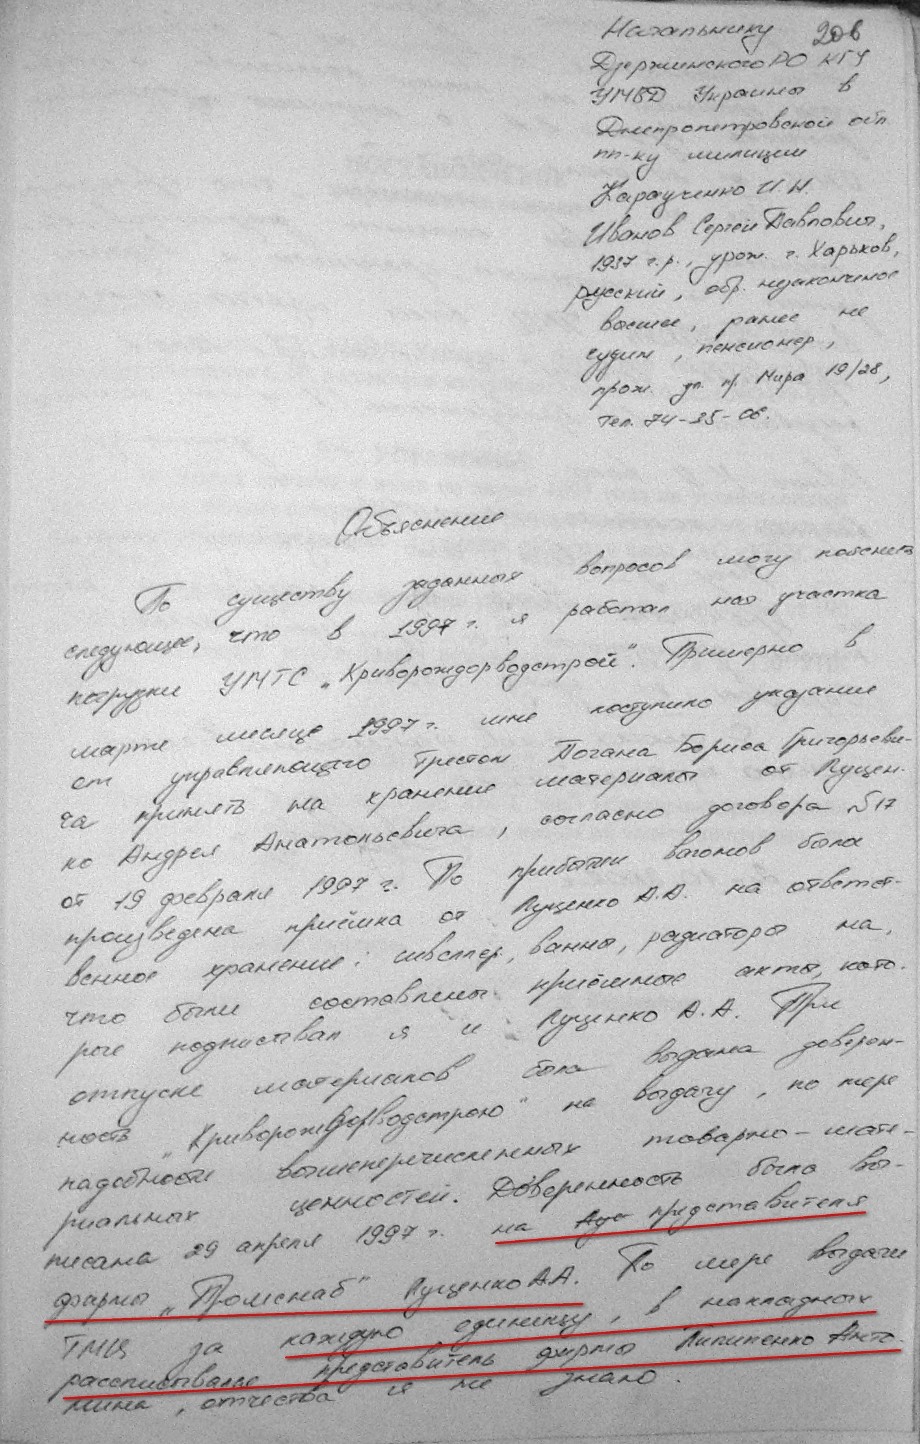 206
Начальнику
Дзержинского РО КГУ
УМВД Украины в
Днепропетровской обл.
пп-ку милиции
Иванов Сергей Павлович,
1937 г.р., урож. г. Харьков,
русский, обр. незаконченое
высшее, ранее не
судим, пенсионер,
прож. ул. пр. Мира 19/28,
тел. 74-35-06.
Объяснение
По существу заданных вопросов могу пояснить
следующее, что в 1997 г. я работал нач участка
погрузки УМТС „Криворождорводстрой". Примерно в
марте месяце 1997 г. мне поступило указание
от управляющего трестом Погана Бориса Григорьеви-
ча принять на хранение материалы от Луцен-
ко Андрея Анатольевича, согласно договора №17
от 19 февраля 1997 г. По прибытии вагонов была
произведена приёмка от Луценко А.А. на ответст-
венное хранение: швеллер, ванны, радиаторы на,
что были составлены приёмные акты, кото-
рые подписывал я и Луценко А.А. При
отпуске материалов была выдана доверен-
ность „Криворождорводстрою" на выдачу, по мере
надобности вышеперечисленных товарно-мате-
риальных ценностей. Доверенность была вы-
писана 29 апреля 1997 г. на представителя
фирмы „Промснаб" Луценко А.А. По мере выдачи
ТМЦ за каждую единицу, в накладных
рассписывалась представитель фирмы Пилипенко Анто-
нина, отчества я не знаю.